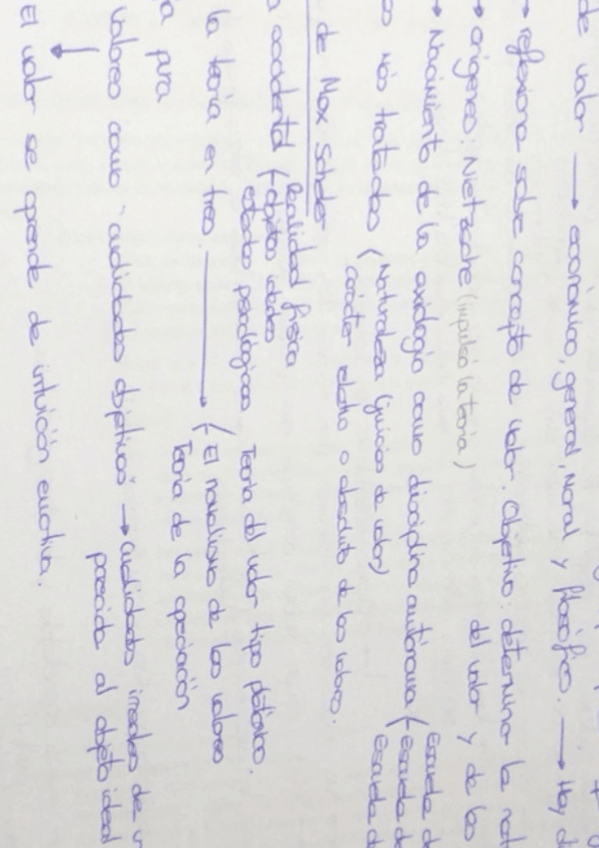 de valor → económico, general, Moral y filosófico. → Hay d
→ reflexiona sobre concepto de valor. Objetivo: determinar la nat
del valor y de los
→ orígenes: Nietzsche (impulsó la teoría)
→ Nacimiento de la axiología como disciplina autónoma
Escuela d
Escuela de
Escuela d
os más tratados
Naturaleza (juicios de valor)
carácter relativo o absoluto de los valores.
de Max Scheler
a occidental
Realidad física
objetos ideales
estados psicológicos
la teoría en tres →
Teoría del valor tipo platónico.
El nominalismo de los valores
Teoría de la apreciación
a pura
valores como "cualidades objetivas → cualidades irreales de
parecida al objeto ideal
El valor se aprende de intuición emotiva.